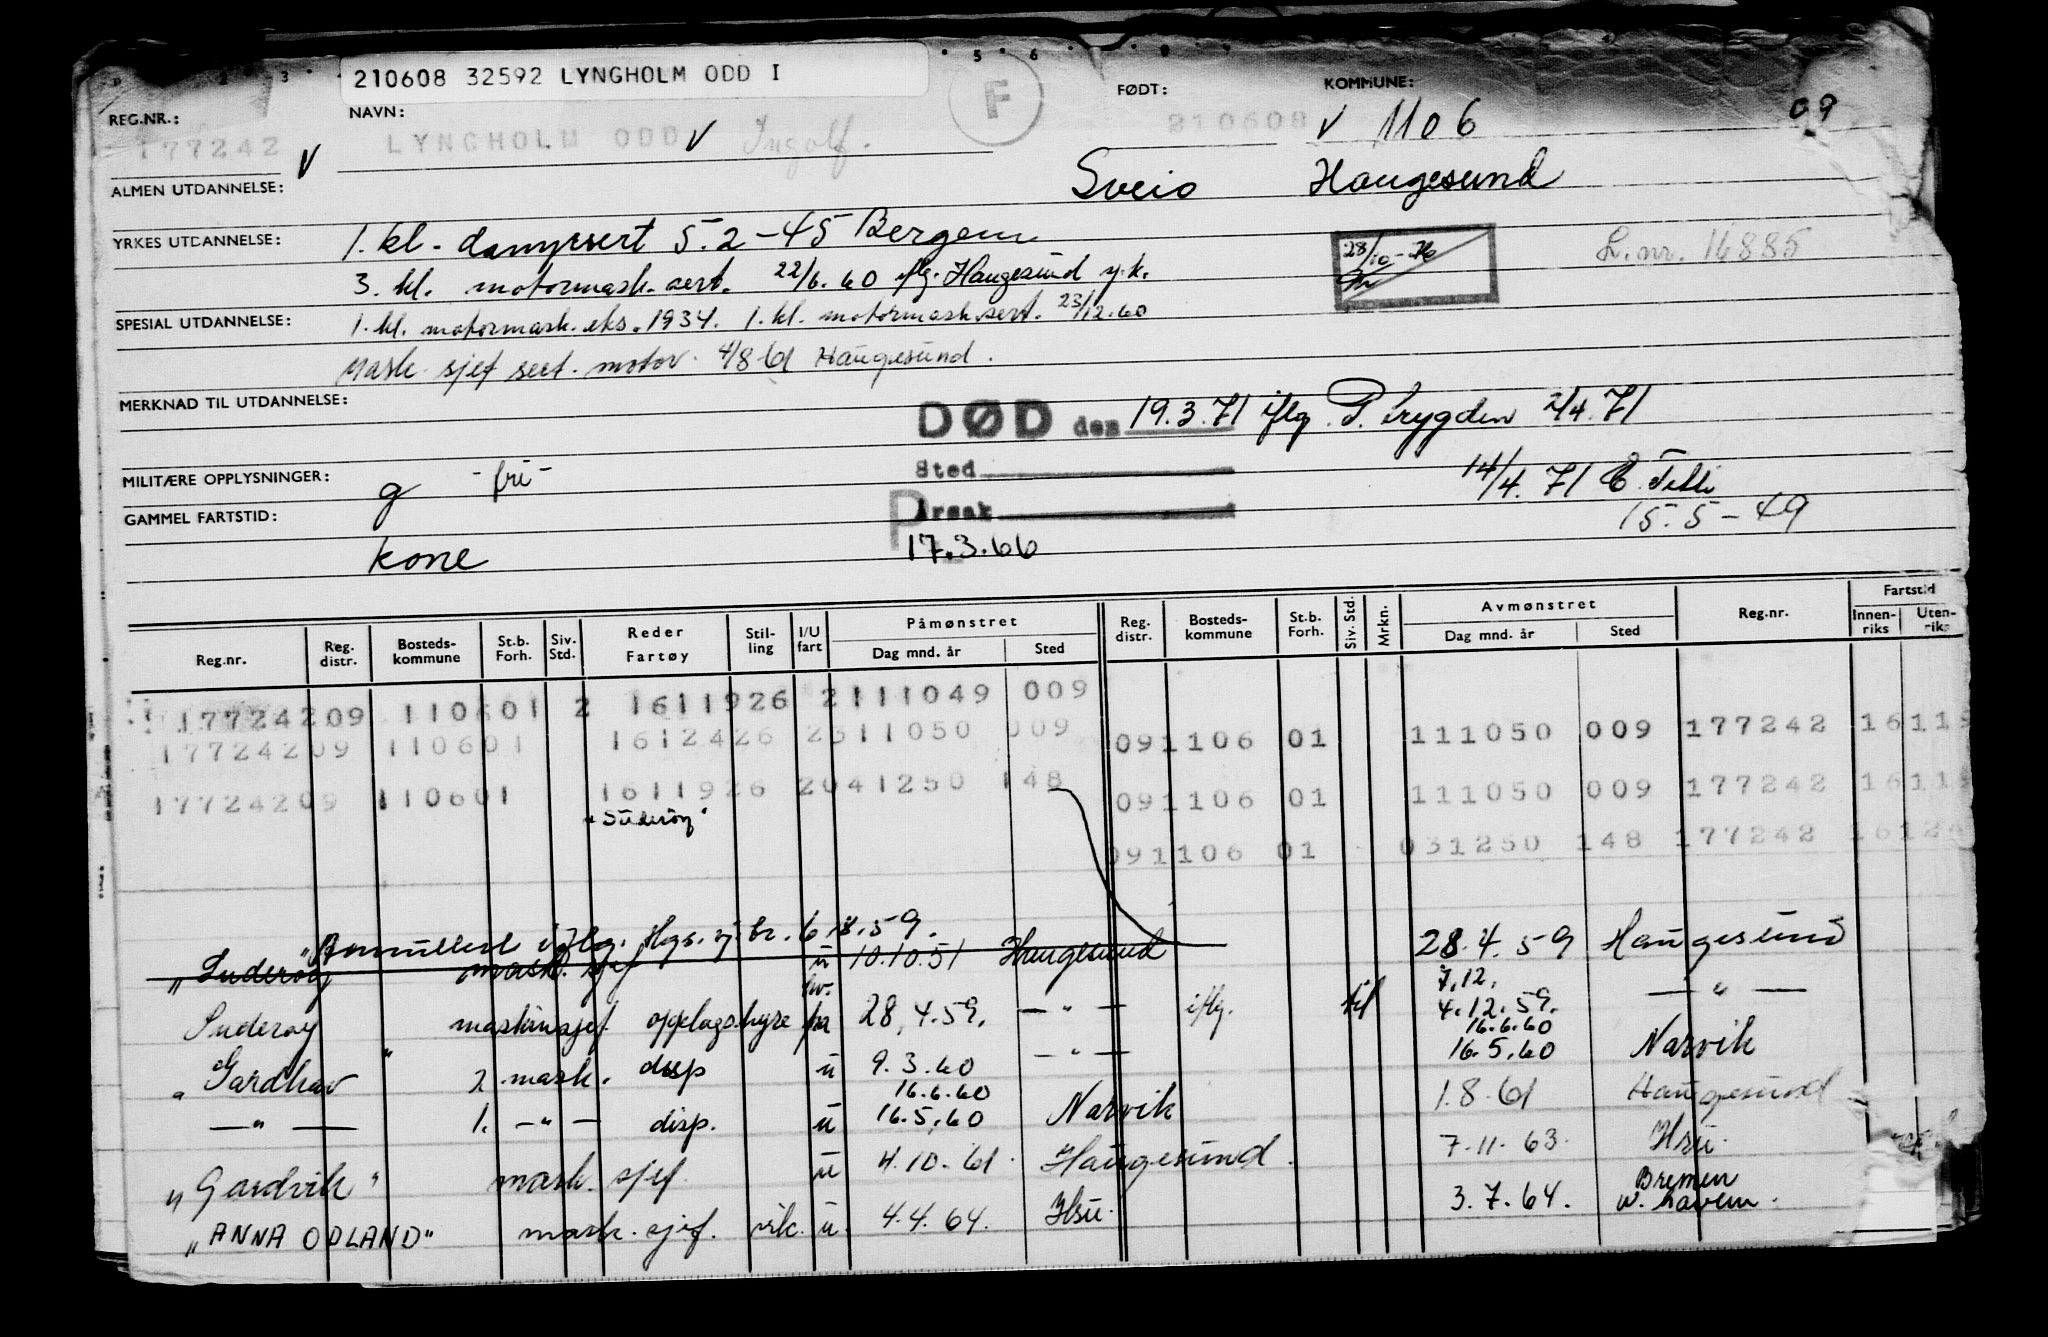 210608 32592 LYNGHOLM ODD I
F
REG.NR.: NAVN: FØDT: KOMMUNE:
177242 V LYNGHOLM ODD V Ingolf. 210608 V 1106 09
ALMEN UTDANNELSE: Sveio Haugesund
YRKES UTDANNELSE: 1. kl. dampsert 5.2-45 Bergen
28/10-76 L.nr. 16885
3. kl. motormask. sert. 22/6.60 iflg. Haugesund
SPESIAL UTDANNELSE: 1. kl. motormask. eks. 1934. 1. kl. motormask.sert. 23/12.60
Mask. sjef sert. motor. 4/8 61 Haugesund.
MERKNAD TIL UTDANNELSE:
DØD den 19.3.71 iflg. P. trygden 2/4.71
MILITÆRE OPPLYSNINGER: g -fri- Sted 14/4.71
GAMMEL FARTSTID: Årsak 15.5-49
kone 17.3.66
Reg.nr. Reg. distr. Bosteds-kommune St.b. Forh. Siv. Std. Reder Fartøy Stil-ling I/U fart Påmønstret Dag mnd. år Sted Reg. distr. Bosteds-kommune St.b. Forh. Siv. Std. Mrkn. Avmønstret Dag mnd. år Sted Reg.nr. Fartstid Innen-riks Uten-riks
177242 09 1106 01 2 1611926 2 111049 009
177242 09 1106 01 1612426 2 311050 009 09 1106 01 111050 009 177242 16119
177242 09 1106 01 1611926 2 041250 148 09 1106 01 111050 009 177242 16119
"Suderøy"
09 1106 01 031250 148 177242 16124
"Annullert iflg. Hgs. sj. br. 6.8.59.
"Suderøy mask. sjef u 10.10.51 Haugesund 28.4.59 Haugesund
Suderøy maskinsjef opplagshyre fra 28.4.59. — " — iflg. til 7.12. 4.12.59. — " —
"Gardhav" 2 mask. disp u 9.3.60 — " — 16.6.60 16.5.60 Narvik
— " — 1. — " — disp. u 16.6.60 16.5.60 Narvik 1.8.61 Haugesund
"Gardvik" mask. sjef u 4.10.61. Haugesund. 7.11.63. Hsu.
"ANNA ODLAND" mask. sjef. vik. u. 4.4.64. Hsu. 3.7.64. Bremen W. haven.